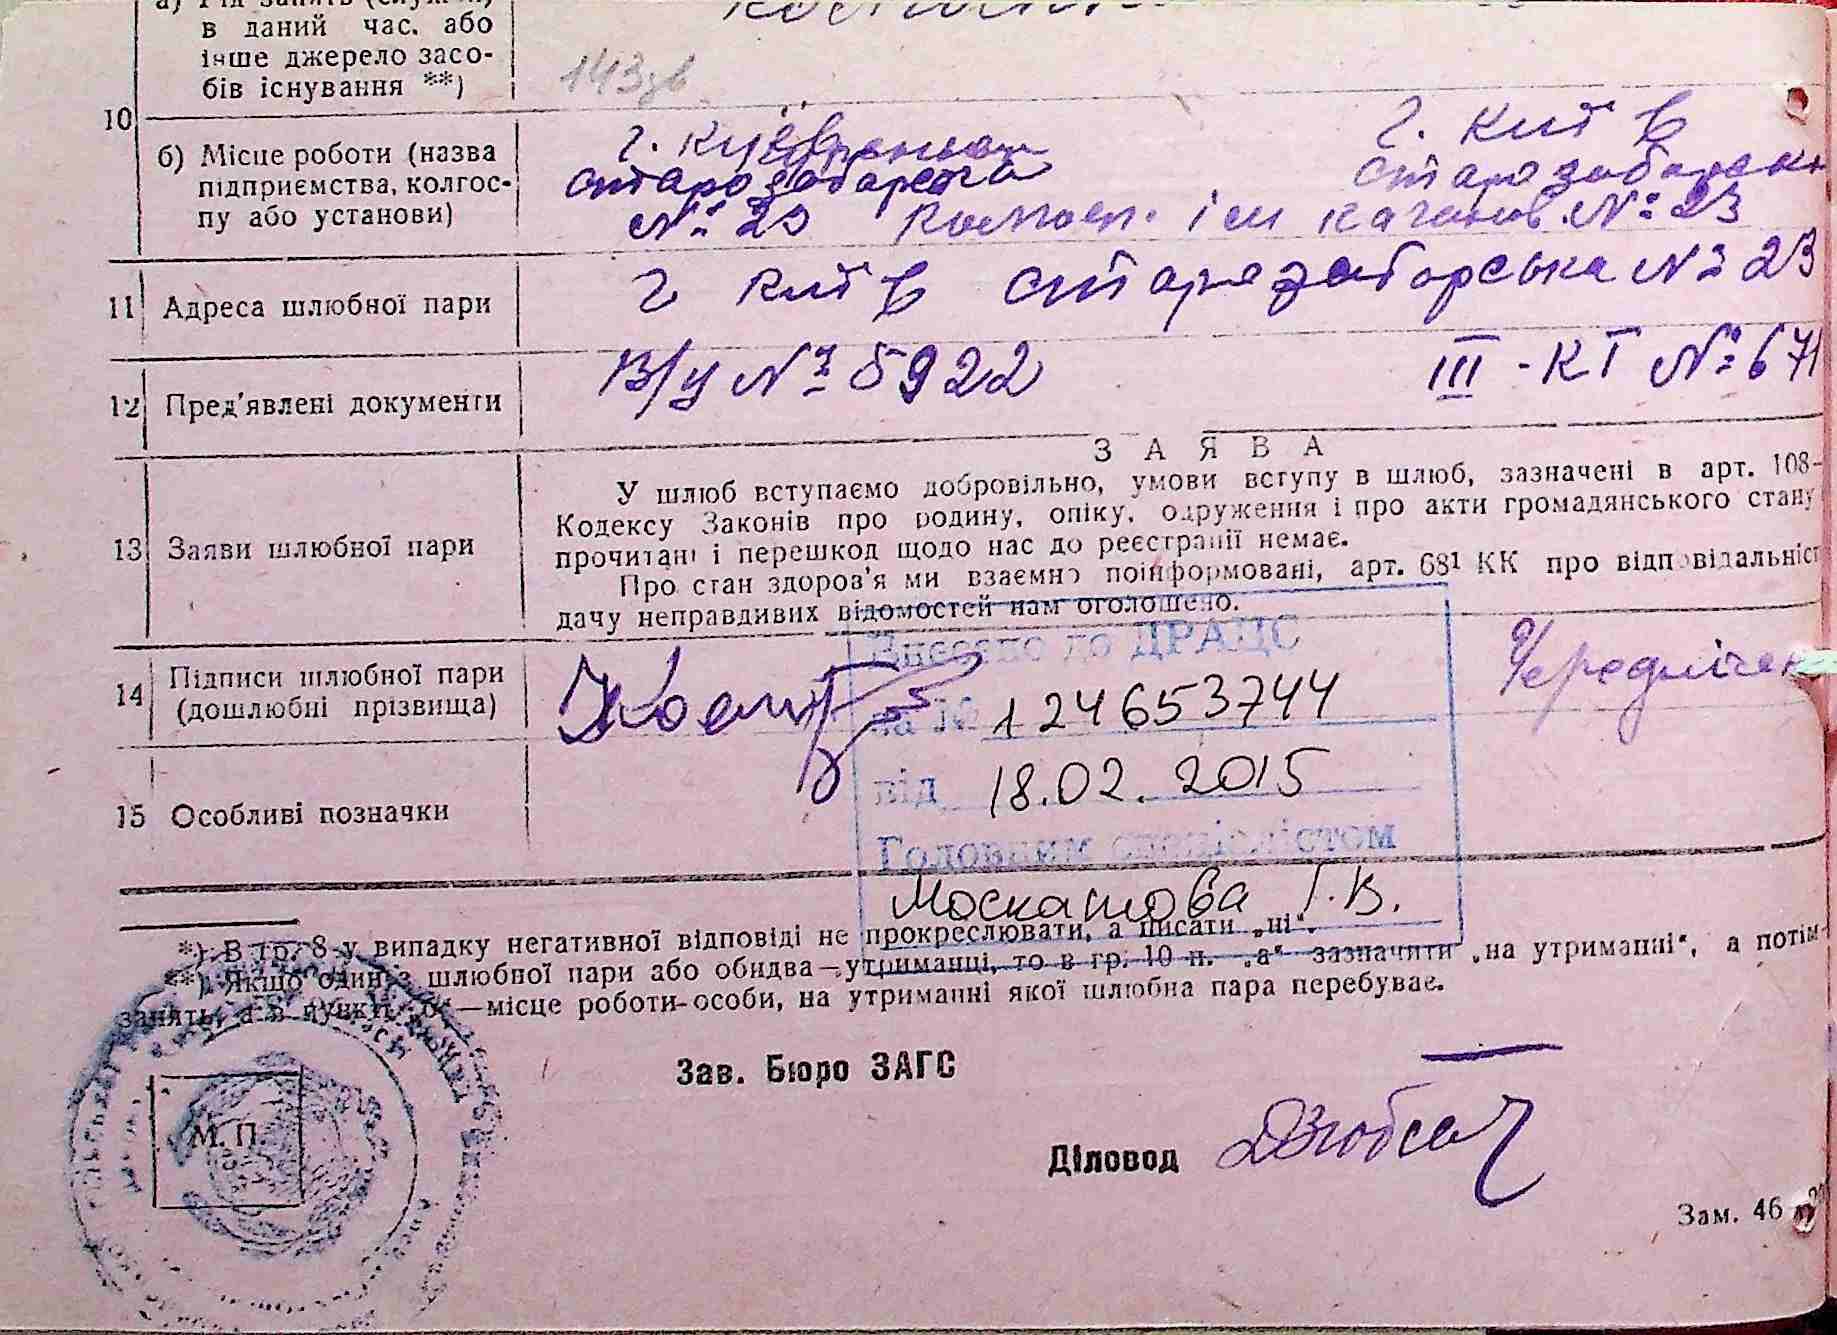 в даний час, або
інше джерело засо-
бів існування **)
143зв
10
б) Місце роботи (назва
підприємства, колгос-
пу або установи)
г. Київ
г. Київ
старозабарська
№ 23
№ 23
11 Адреса шлюбної пари
г Київ старозабарська № 23
12 Пред'явлені документи
В/у № 5922
III - КТ № 671
13 Заяви шлюбної пари
ЗАЯВА
У шлюб вступаємо добровільно, умови вступу в шлюб, зазначені в арт. 108-
Кодексу Законів про родину, опіку, одруження і про акти громадянського стану
прочитані і перешкод щодо нас до реєстрації немає.
Про стан здоров'я ми взаємно поінформовані, арт. 68¹ КК про відповідальніст
дачу неправдивих відомостей нам оголошено.
14 Підписи шлюбної пари
(дошлюбні прізвища)
Внесено до ДРАЦС
за № 124653744
від 18.02.2015
Головним спеціалістом
Москатова Г.В.
15 Особливі позначки
*) В гр. 8 у випадку негативної відповіді не прокреслювати, а писати „ні“.
**) Якщо один з шлюбної пари або обидва—утриманці, то в гр. 10 п. „а“ зазначити „на утриманні“, а потім
занять, а в пункті „б“—місце роботи-особи, на утриманні якої шлюбна пара перебуває.
Зав. Бюро ЗАГС
М. П.
Діловод
Зам. 46